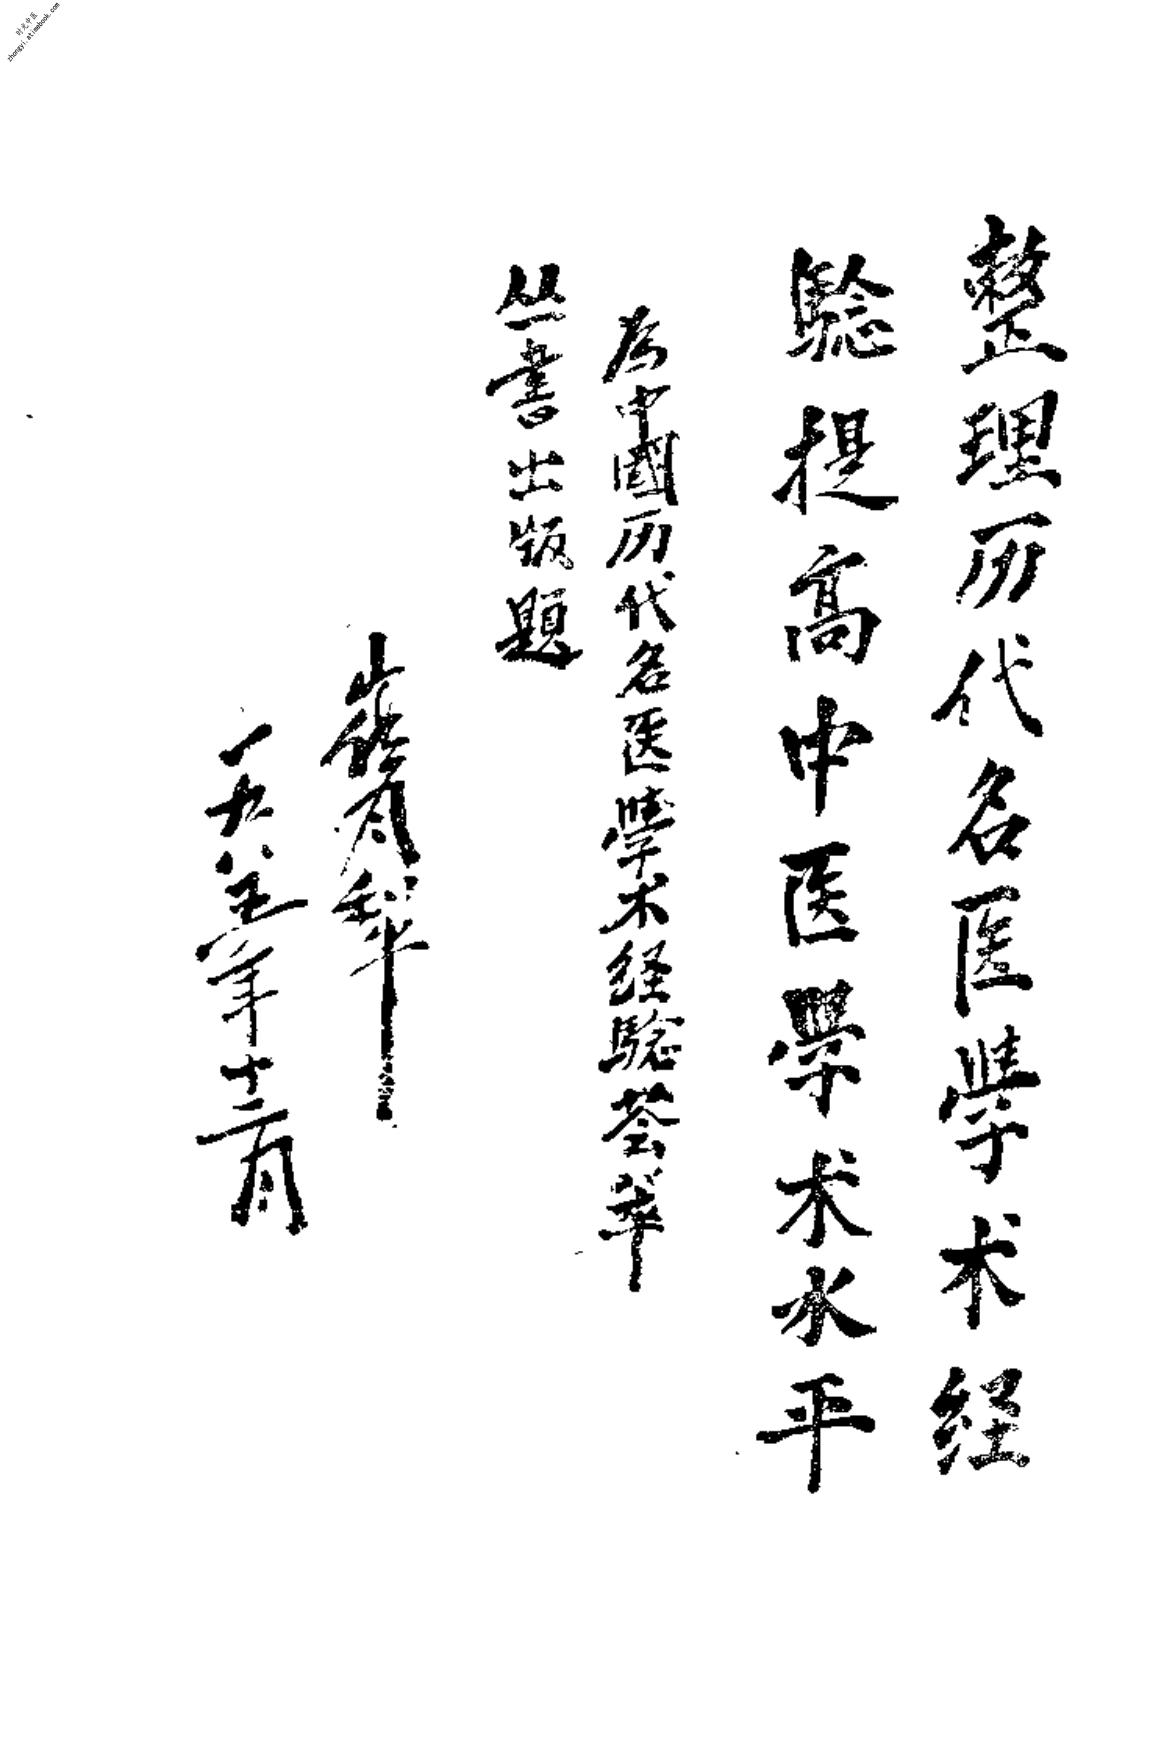 整理历代名医學术经
驗提高中医學术水平
为中國历代名医學术经驗荟萃
丛書出版題
崔月犁
一九八五年十二月
时光中医
zhongyi.atimebook.com